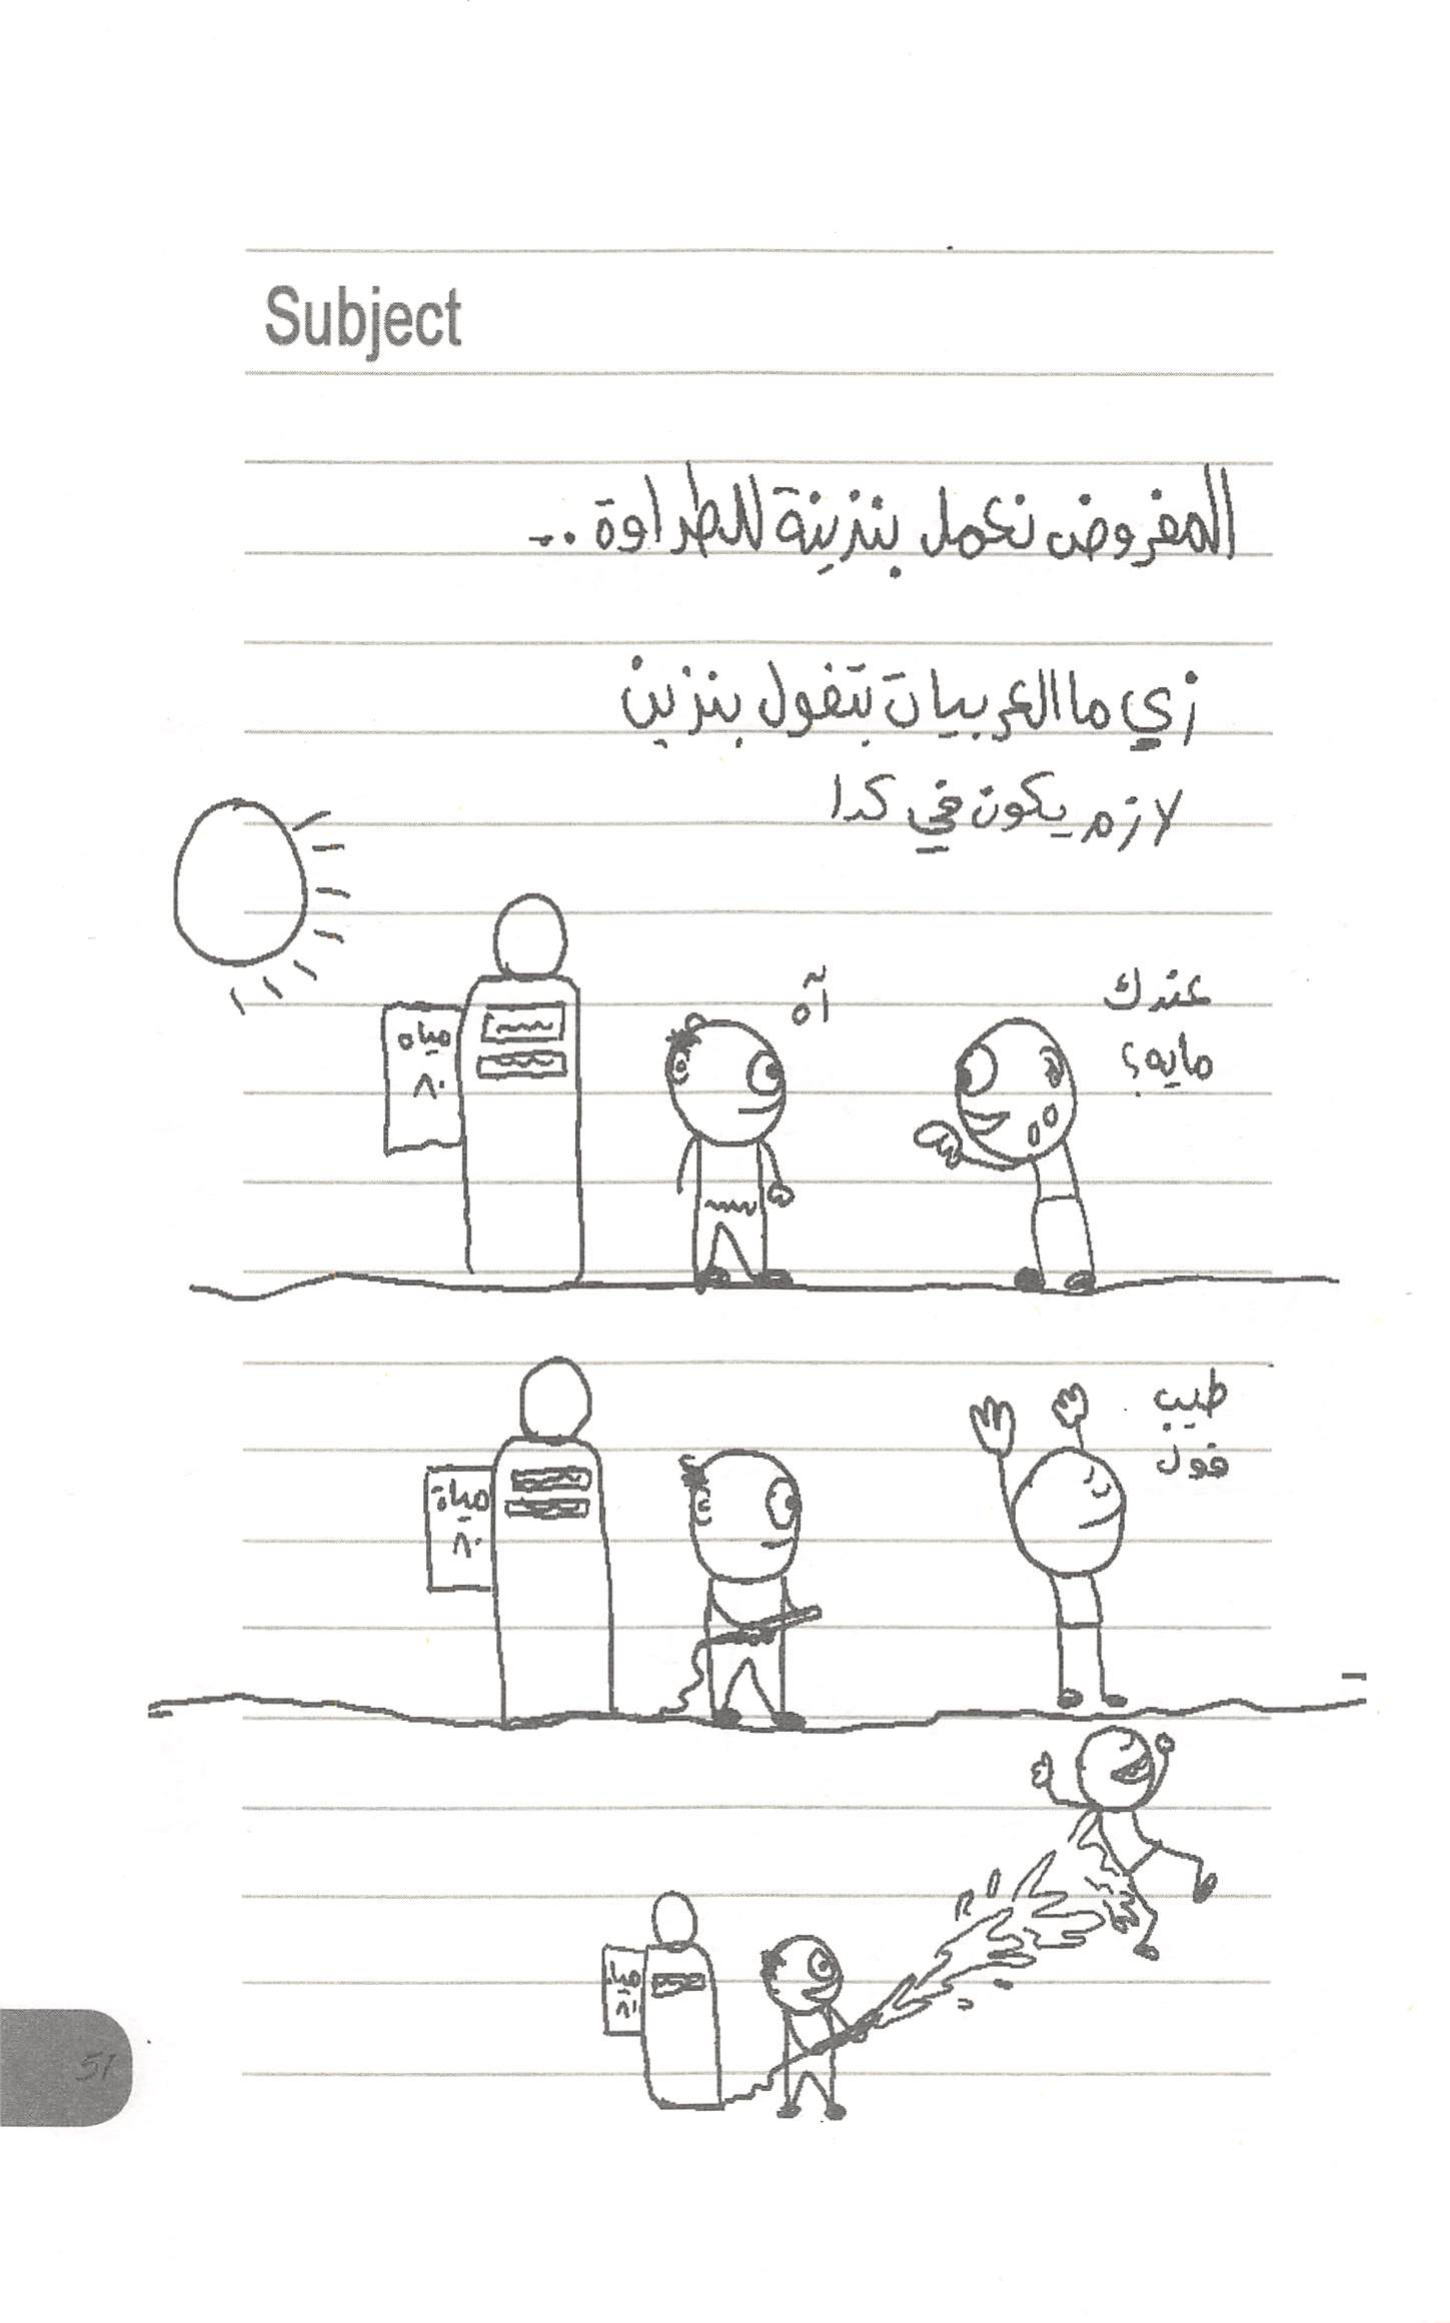 Subject
المفروض نعمل بنزينة للطراوة ..
زي ما العربيات بتفول بنزين
لازم يكون في كدا
عندك
مايه؟
آه
مياه
٨٠
طيب
فول
مياة
٨٠
مياة
٨٠
51